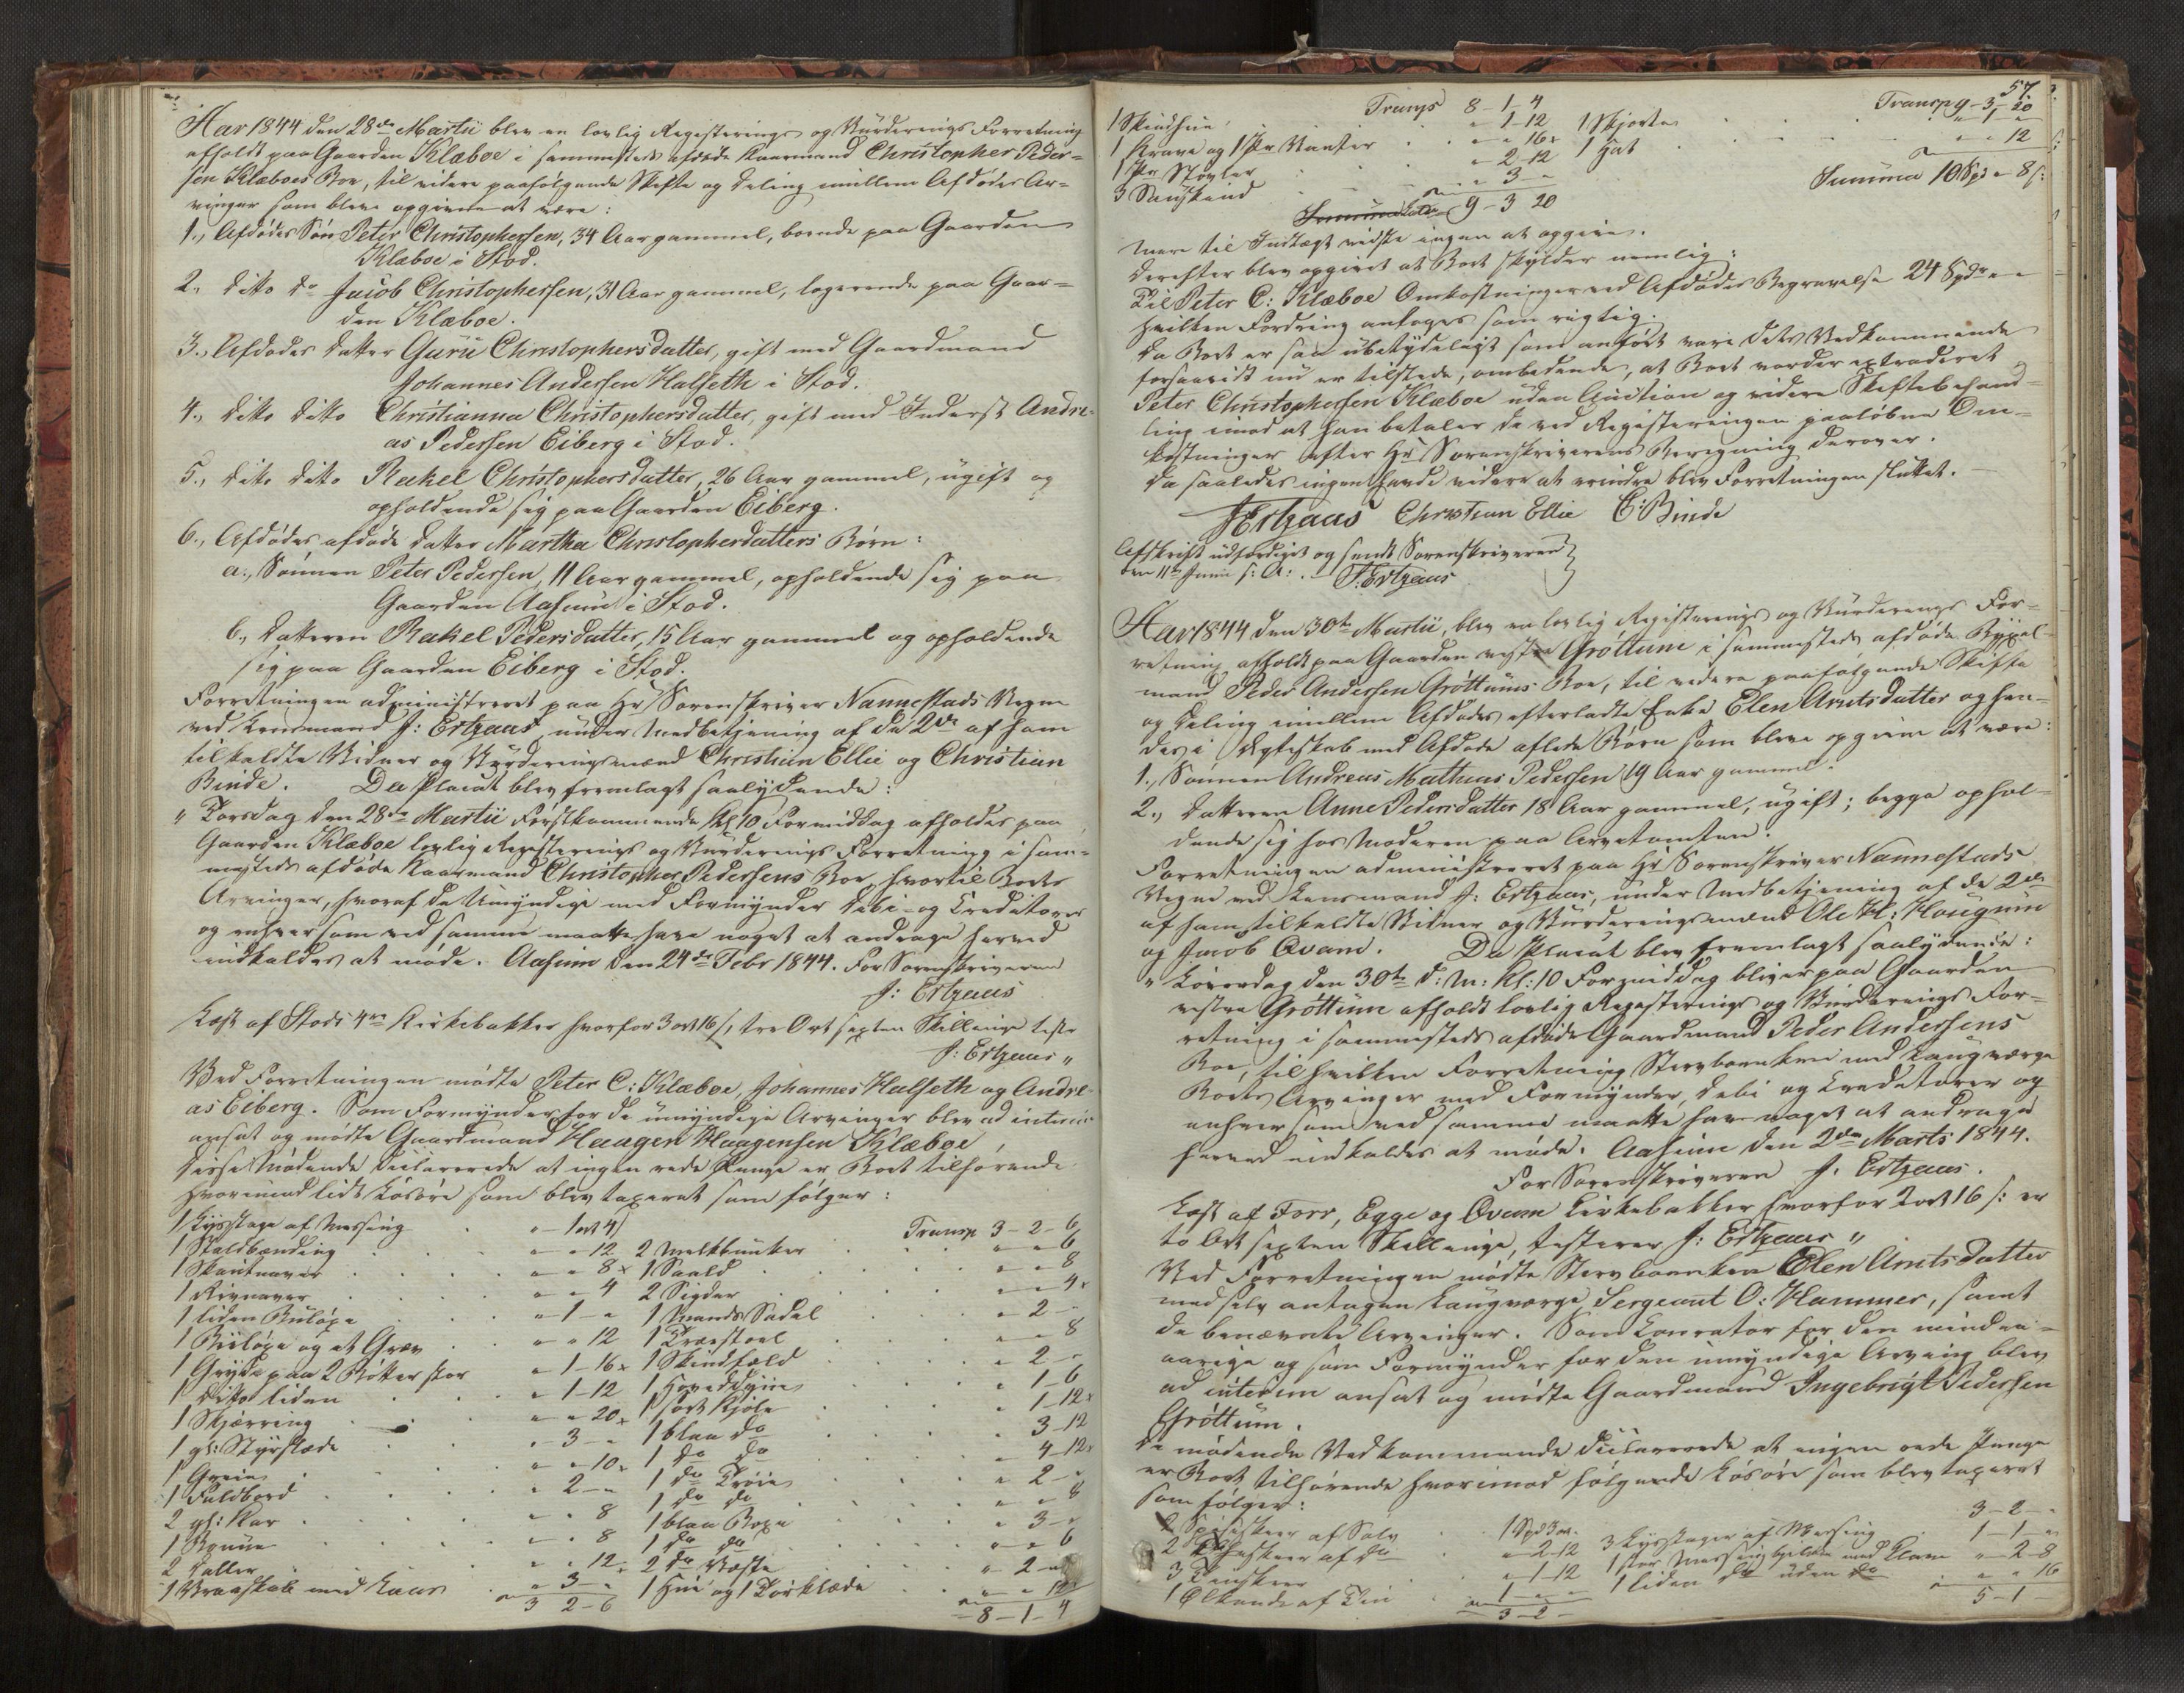 Aar 1844 den 28de Martii blev en lovlig Registerings og Vurderings Forretning
afholdt paa Gaarden Klæboe i sammesteds afdøde Kaarmand Christopher Peder=
sen Klæboes Boe, til videre paafølgende Skifte og Deling imellem Afdødes Ar=
vinger som bleve opgivne at være:
1., Afdødes Søn Peter Christophersen, 34 Aar gammel, boende paa Gaarden
Klæboe i Stod.
2., Ditto Do Jacob Christophersen, 31 Aar gammel, logerende paa Gaar=
den Klæboe.
3., Afdødes Datter Guru Christophersdatter, gift med Gaardmand
Johannes Andersen Halseth i Stod.
4., Ditto Ditto Christianna Christophersdatter, gift med Inderst Andre=
as Pedersen Eiberg i Stod.
5., Ditto Ditto Rakel Christophersdatter, 26 Aar gammel, ugift og
opholdende sig paa Gaarden Eiberg.
6., Afdødes afdøde Datter Martha Christopherdatters Børn:
a., Sønnen Peter Pedersen, 11 Aar gammel, opholdende sig paa
Gaarden Aasum i Stod.
b., Datteren Rakel Pedersdatter, 15 Aar gammel og opholdende
sig paa Gaarden Eiberg i Stod.
Forretningen administreret paa Hr Sorenskriver Nannestads Vegne
ved Lensmand J: Ertzaas under Medbetjening af de 2de af ham
tilkaldte Vidner og Vurderingsmænd Christian Ellie og Christian
Binde. Da Placat blev fremlagt saalydende:
" Torsdag den 28de Martii førstkommende Kl 10 Formiddag afholdes paa
Gaarden Klæboe lovlig Registerings og Vurderings Forretning i sam=
mesteds afdøde Kaarmand Christopher Pedersens Boe, hvortil Boets
Arvinger, hvoraf de Umyndige med Formynder Debi- og Creditorer
og enhver som ved samme maatte have noget at andrage herved
indkaldes at møde. Aasum den 24de Febr 1844. For Sorenskriveren
J: Ertzaas
Læst af Stods 4re Kirkebakker hvorfor 3 ort 16 s, tre Ort sexten Skillinge teste
J: Ertzaas "
Ved Forretningen mødte Peter C: Klæboe, Johannes Halseth og Andre
as Eiberg. Som Formynder for de umyndige Arvinger blev ad interim
ansat og mødte Gaardmand Haagen Haagensen Klæboe,
Disse Mødende declarerede at ingen rede Penge er Boet tilhørende
hvorimod lidt Løsøre som blev taxeret som følger:
1 Lysestage af Messing " 1 ort 4 s Transp 3-2-6
1 Staldbænding " " 12 2 Melkbunker " " 6
1 Skautnaver " " 8 1 Saald " " 8
1 Rivnaver " " 4 2 Sigder " " 4
1 liden Buløxe " 1 " 1 Mands Sadel " 2 "
1 Buløxe og et Græv " " 12 1 Træstoel " " 8
1 Gryde paa 2 Potter stor " 1-16 1 Skindfæld " 2 "
1 Ditto liden " 1-12 1 Hoveddyne " 1-6
1 Skjæring " " 20 1 sort Kjole " 1-12
1 gl: Styrslæde " 3 " 1 blaa do " 3-12
1 Grein " " 10 1 do do " 4-12
1 Fuldbord " 2 " 1 do Trøie " 2 "
2 gl: Kar " " 8 1 do do " " 8
1 " " 8 1 blaa Boxe " 3 "
2 Taller " " 12 1 do do " " 6
1 Vraaskab med Laas " 3 " 2 do Veste " 2 "
3 2-6 1 Hue og 1 Tørklæde " " 12
8-1-4
57.
Transp 8-1-4 Transp 9-3-20
1 Skindhue " 1-12 1 Skjorte " 1 "
1 Krave og 1 Pr Vanter " " 16 1 Hat " " 12
1 Pr Støvler " 2-12 Summa 10 Spd " 8 s:
3 Saueskind " 3 "
Summa 9-3 20
Mere til Indtægt vidste ingen at opgive.
Derefter blev opgivet at Boet skylder nemlig:
Til Peter C: Klæboe Omkostninger ved Afdødes Begravelse 24 Spdr " "
hvilken Fordring antoges som rigtig.
Da Boet er saa ubetydeligt som anført vare dets Vedkommende
forsaavidt nu er tilstede, ombedende, at Boet vorder extraderet
Peter Christophersen Klæboe uden Auction og videre Skiftebehand=
ling imod at han betaler de ved Registeringen paaløbne Om=
kostninger efter Hr Sorenskriverens Beregning derover.
Da saaledes ingen havde videre at erindre blev Forretningen sluttet.
JErtzaas Christian Ellie C: Binde
Afskrift udfærdiget og sendt Sorenskriveren
den 11te Junii s: A: J. Ertzaas
Aar 1844 den 30te Martii, blev en lovlig Registerings og Vurderings For=
retning afholdt paa Gaarden vestre Grøttum i sammesteds afdøde Bøxel=
mand Peder Andersen Grøttums Boe, til videre paafølgende Skifte
og Deling imellem Afdødes efterladte Enke Elen Arntsdatter og hen=
des i Ægteskab med Afdøde avlede Børn som bleve opgivne at være:
1., Sønnen Andreas Mathias Pedersen 19 Aar gammel.
2., Datteren Anne Pedersdatter 18 Aar gammel, ugift; begge ophol=
dende sig hos Moderen paa Arvetomten.
Forretningen administreret paa Hr Sorenskriver Nannestads
Vegne ved Lensmand J: Ertzaas, under Medbetjening af de 2de
af ham tilkaldte Vidner og Vurderingsmænd Ole H: Hougum
og Jacob Qvam. Da Placat blev fremlagt saalydende:
" Løverdag den 30te d: M: Kl: 10 Formiddag bliver paa Gaarden
vestre Grøttum afholdt lovlig Registerings og Vurderings For=
retning i sammesteds afdøde Gaardmand Peder Andersens
Boe, til hvilken Forretning Stervboenken med Laugværge
Boets Arvinger med Formynder, Debi og Creditorer og
enhver som ved samme maatte have noget at andrage
herved indkaldes at møde. Aasum den 2den Marts 1844.
For Sorenskriveren J. Ertzaas.
Læst af Forr, Egge og Qvam Kirkebakker hvorfor 2 ort 16 s: er
to Ort sexten Skillinge, testerer J: Ertzaas "
Ved Forretningen mødte Stervboenken Elen Arntsdatter
med selv antagen Laugværge Sergeant O: Hammer, samt
de benævnte Arvinger. Som Courator for den mindre=
aarige og som Formynder for den umyndige Arving blev
ad interim ansat og mødte Gaardmand Ingebrigt Pedersen
Grøttum.
De mødende Vedkommende declarerede at ingen rede Penge
er Boet tilhørende hvorimod følgende Løsøre som blev taxeret
som følger: 3-2-"
2 Spiseskeer af Sølv 1 Spd 3 ort. 3 Lysestager af Messing 1-1 "
2 Theskeer af do " 2-12 1 stor Messingkjedel med Laag " 2-8
3 Tinskeer " 1-12 1 liden do uden do " " 16
1 Ølkande af Tin 1 " " 5-1 -
3-2-